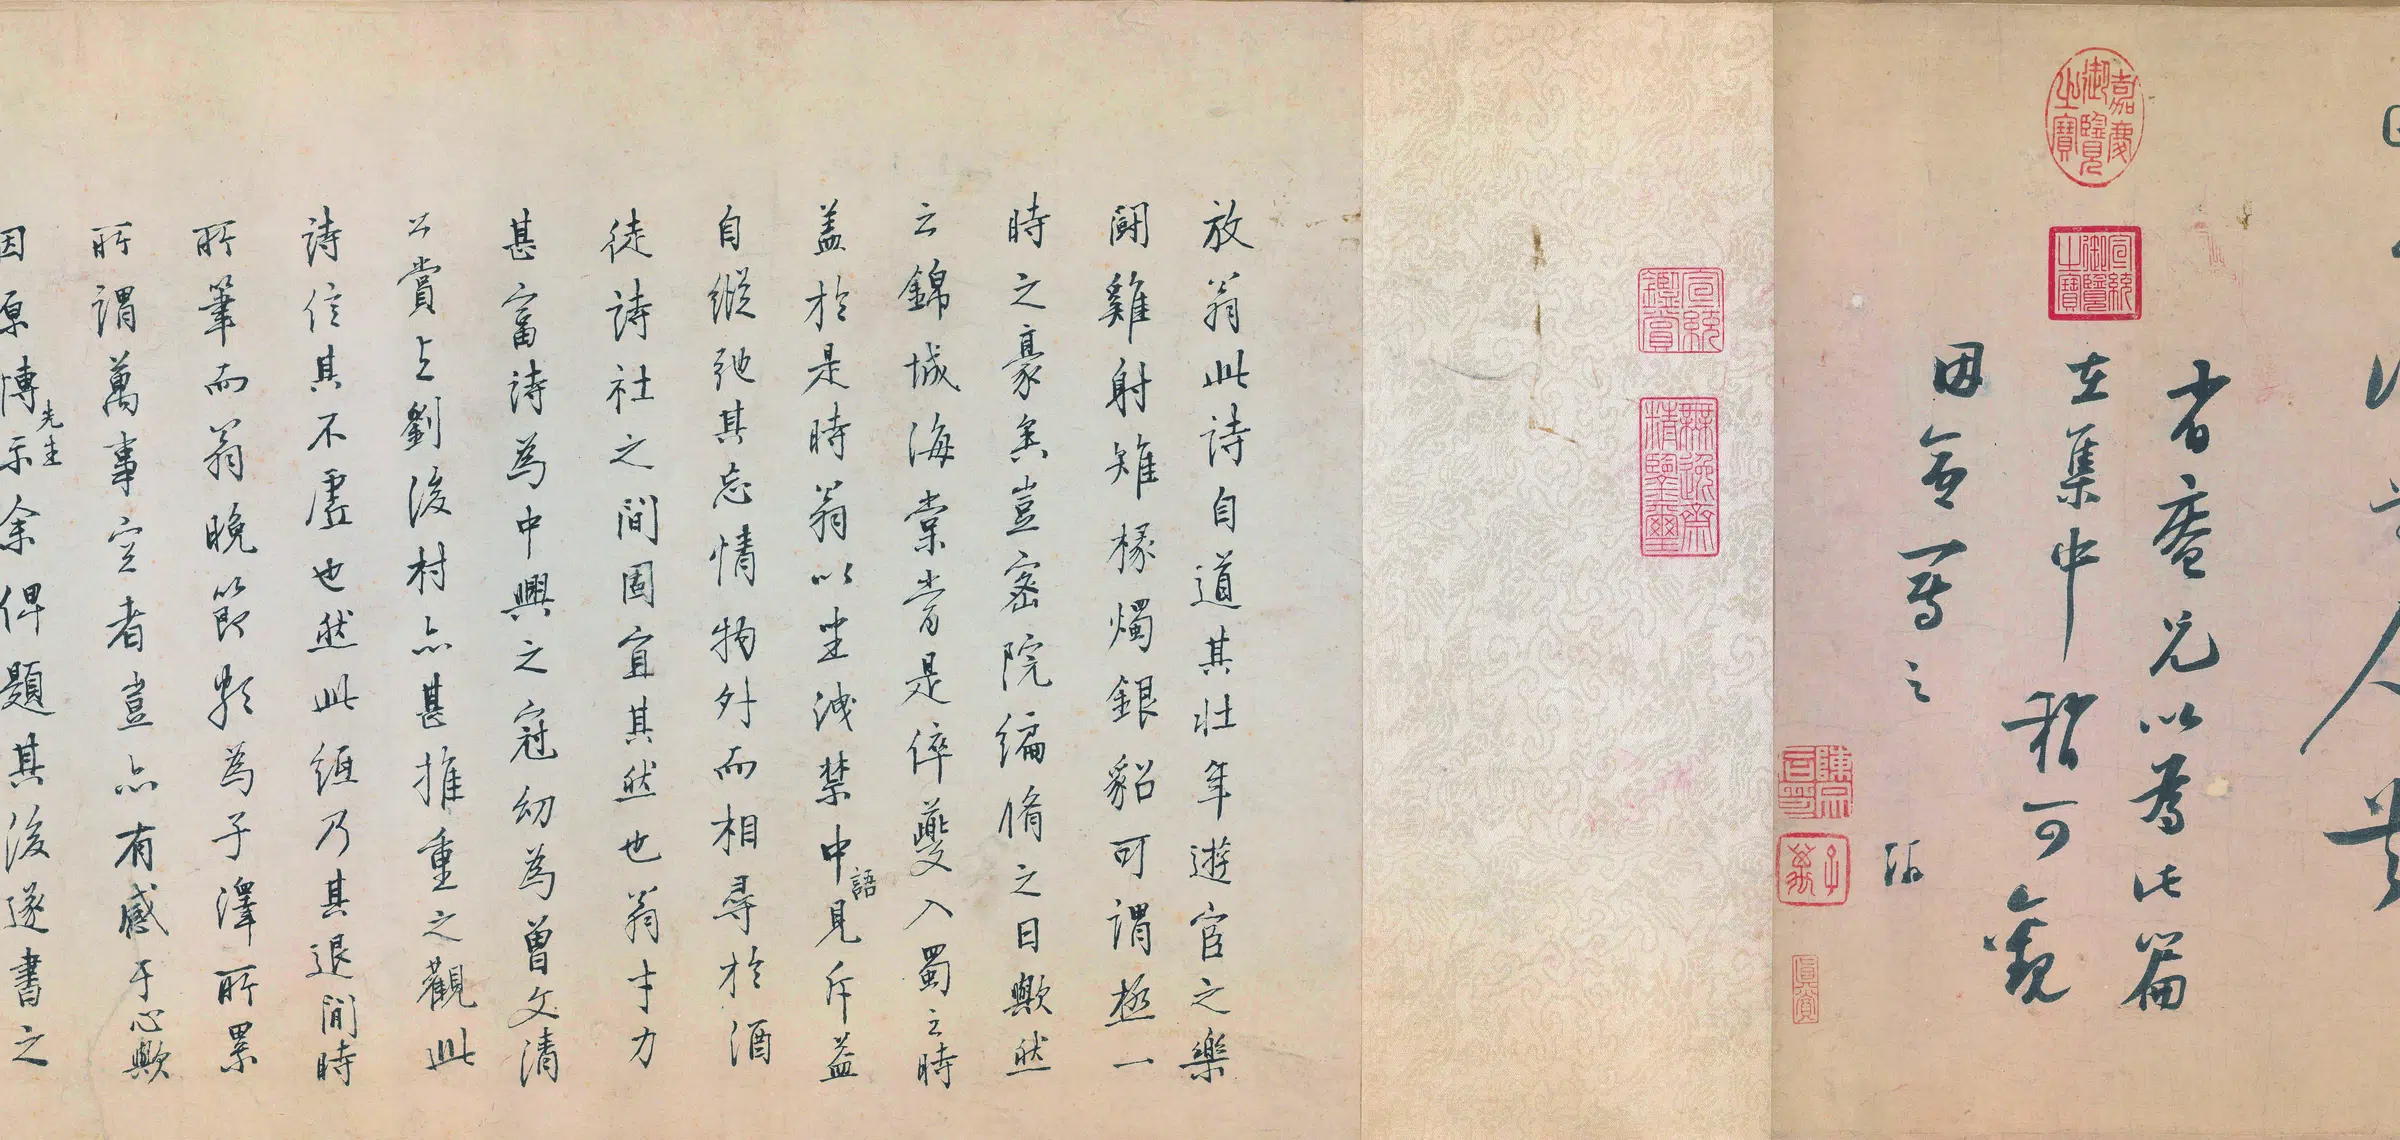 省庵兄以為此篇
在集中稍可觀
因命寫之
游
嘉慶御覽之寶
宣統御覽之寶
宣統鑑賞
無逸齋精鑒璽
真賞
放翁此詩自道其壯年遊宦之樂
鬪雞射雉椽燭銀貂可謂極一
時之豪矣豈密院編脩之日歟然
云錦城海棠者是倅夔入蜀之時
蓋於是時翁以坐洩禁中語見斥益
自縱弛其忘情物外而相尋於酒
徒詩社之間固宜其然也翁才力
甚富詩為中興之冠幼為曾文清
公賞之劉後村亦甚推重之觀此
詩信其不虛也然此紙乃其退閒時
所筆而翁晚節頗為子澤所累
所謂萬事空者豈亦有感于心歟
因原博先生示余俾題其後遂書之